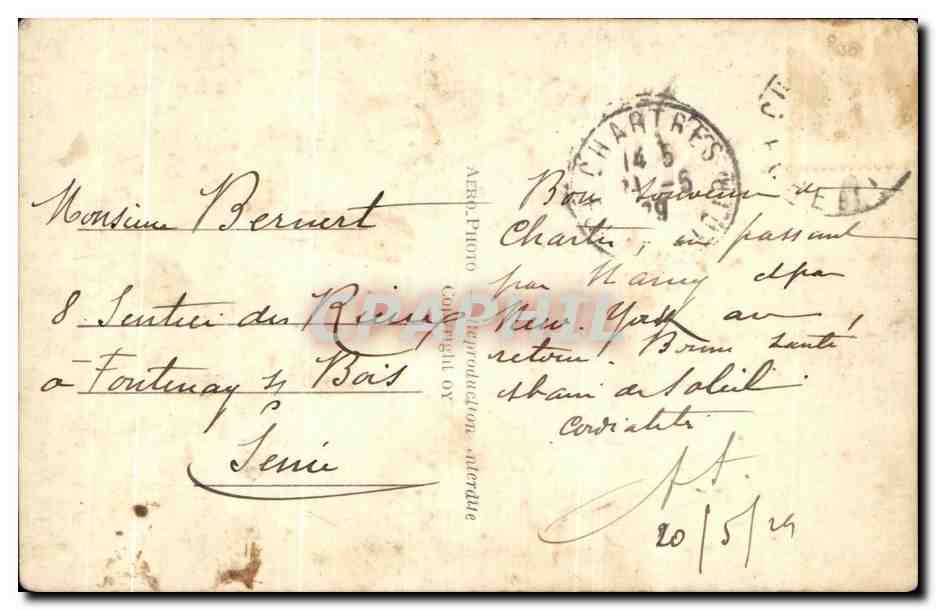 Monsieur Bernert
8 Sentier des
à Fontenay s/ Bois
Seine
AERO-PHOTO Reproduction interdite
Copyright OY
CHARTRES
14 5
-5
29
Bon Souvenir de
Chartres, en passant
par Nancy et par
New-York au
retour. Bonne santé
et bain de Soleil
Cordialités
20/5/29
CPAPHIL